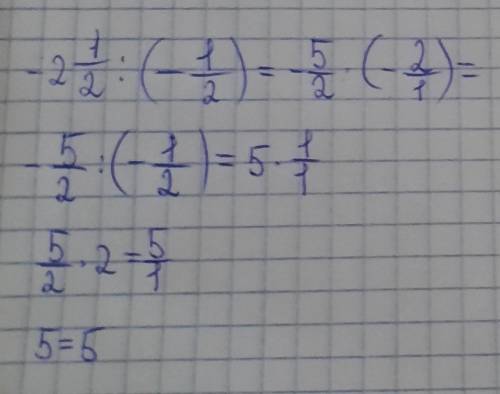 -2 1/2 : (-1/2) = -5/2 · (-2/1) =
-5/2 : (-1/2) = 5 · 1/1
5/2 · 2 = 5/1
5 = 5